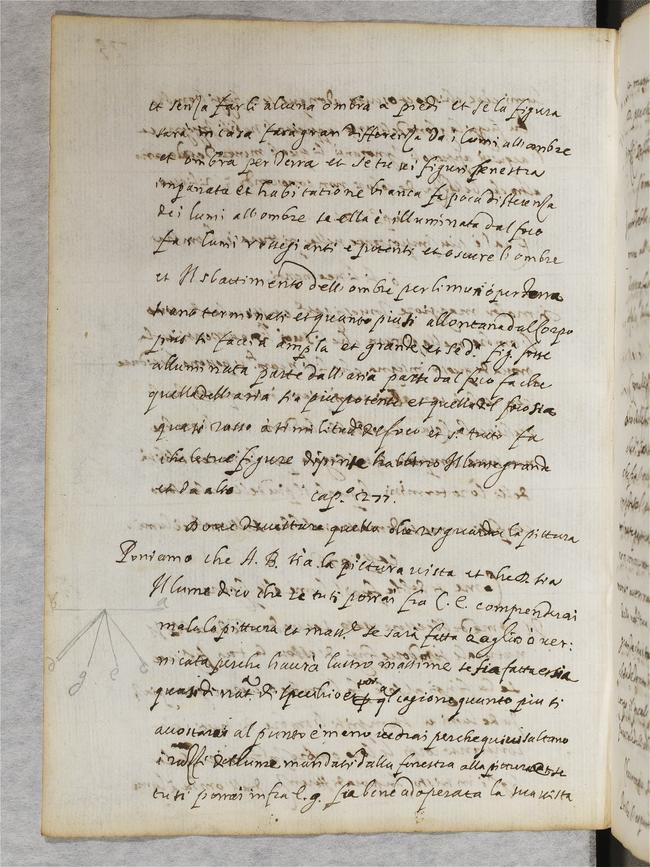 et senza farli alcuna ombra a piedi et se la figura
sara in casa fara gran differenza da i lumi all ombre
et ombra per terra et se tu vi figuri fenestra
impanata et habitatione bianca fa poca differenza
dei lumi all ombre se ella è illuminata dal foco
fa i lumi rossegianti e potenti et oscure l ombre
et il sbattimento dell ombre per li muri ò per terra
siano terminati et quanto piu si allontana dal corpo
piu si faccia ampla et grande et se dª figª fosse
alluminata parte dall aria parte dal foco fa che
quella dell aria sia piu potente et quella del foco sia
quasi rosso à similitudª del foco et sª tutto fa
che le tue figure dipinte habbino il lume grande
et da alto capº 277.
Dove deve stare quello che risguarda la pittura
Poniamo che A. B. sia la pittura vista et che D sia
il lume dico che se tu ti porrai fra C. E. comprenderai
male la pittura et massᵉ se sarà fatta à oglio ò ver:
nicata perche haurà lustro massime se sia fatta e sia
quasi di natª di specchio et per qª cagione quanto piu ti
accostarai al punto e meno vedrai perche quivi saltano
i risalti del lume mandati dalla finestra alla pittura et se
tu ti porrai infra e. g. sia bene adoperata la tua vista
a
b
d
g
e
c